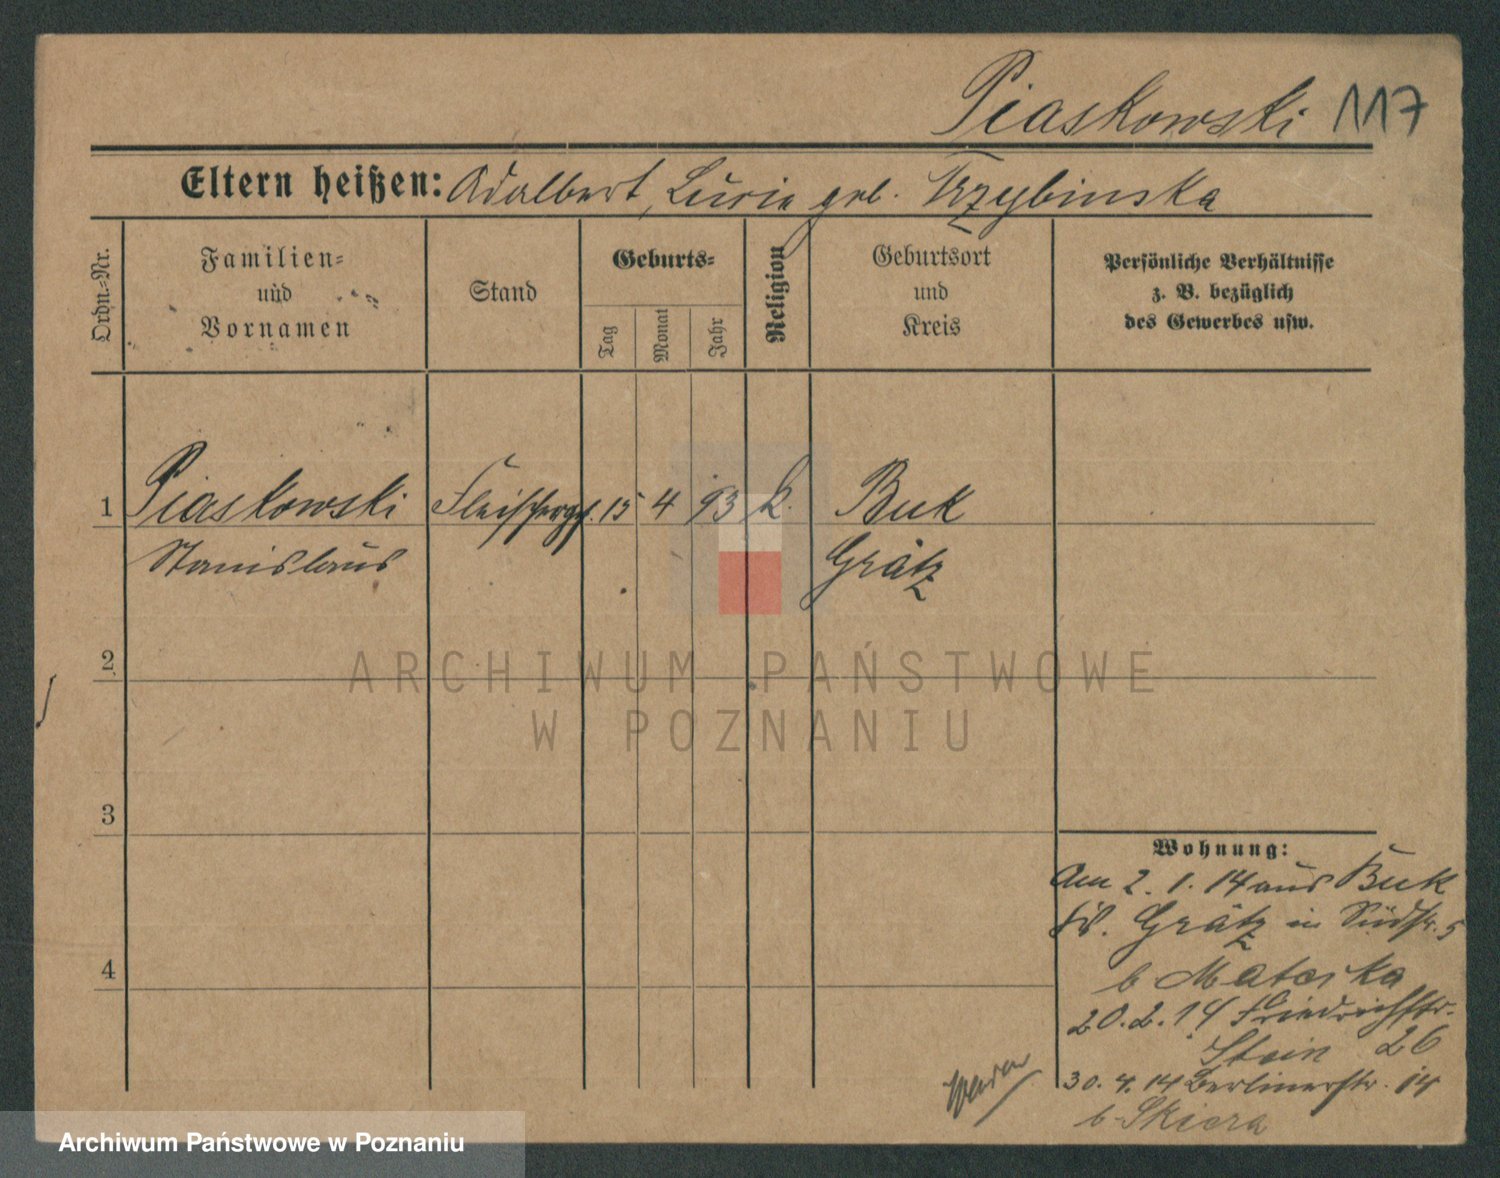 Piaskowski 117
Eltern heißen: Adalbert, Lucie geb. Trzybinska
Ordn.-Nr.
Familien-
und
Vornamen
Stand
Geburts-
Tag
Monat
Jahr
Religion
Geburtsort
und
Kreis
Persönliche Verhältnisse
z. B. bezüglich
des Gewerbes usw.
1 Piaskowski Fleischerges. 15 4 93 k. Buk
Stanislaus Grätz
2
ARCHIWUM PAŃSTWOWE
W POZNANIU
3
4
Wohnung:
Am 2. 1. 14 aus Buk
Grätz in Südstr. 5
b Matoska
20. 2. 14 Friedrichstr.
Stein 26
30. 4. 14 Berlinerstr. 14
b Skiera
Archiwum Państwowe w Poznaniu